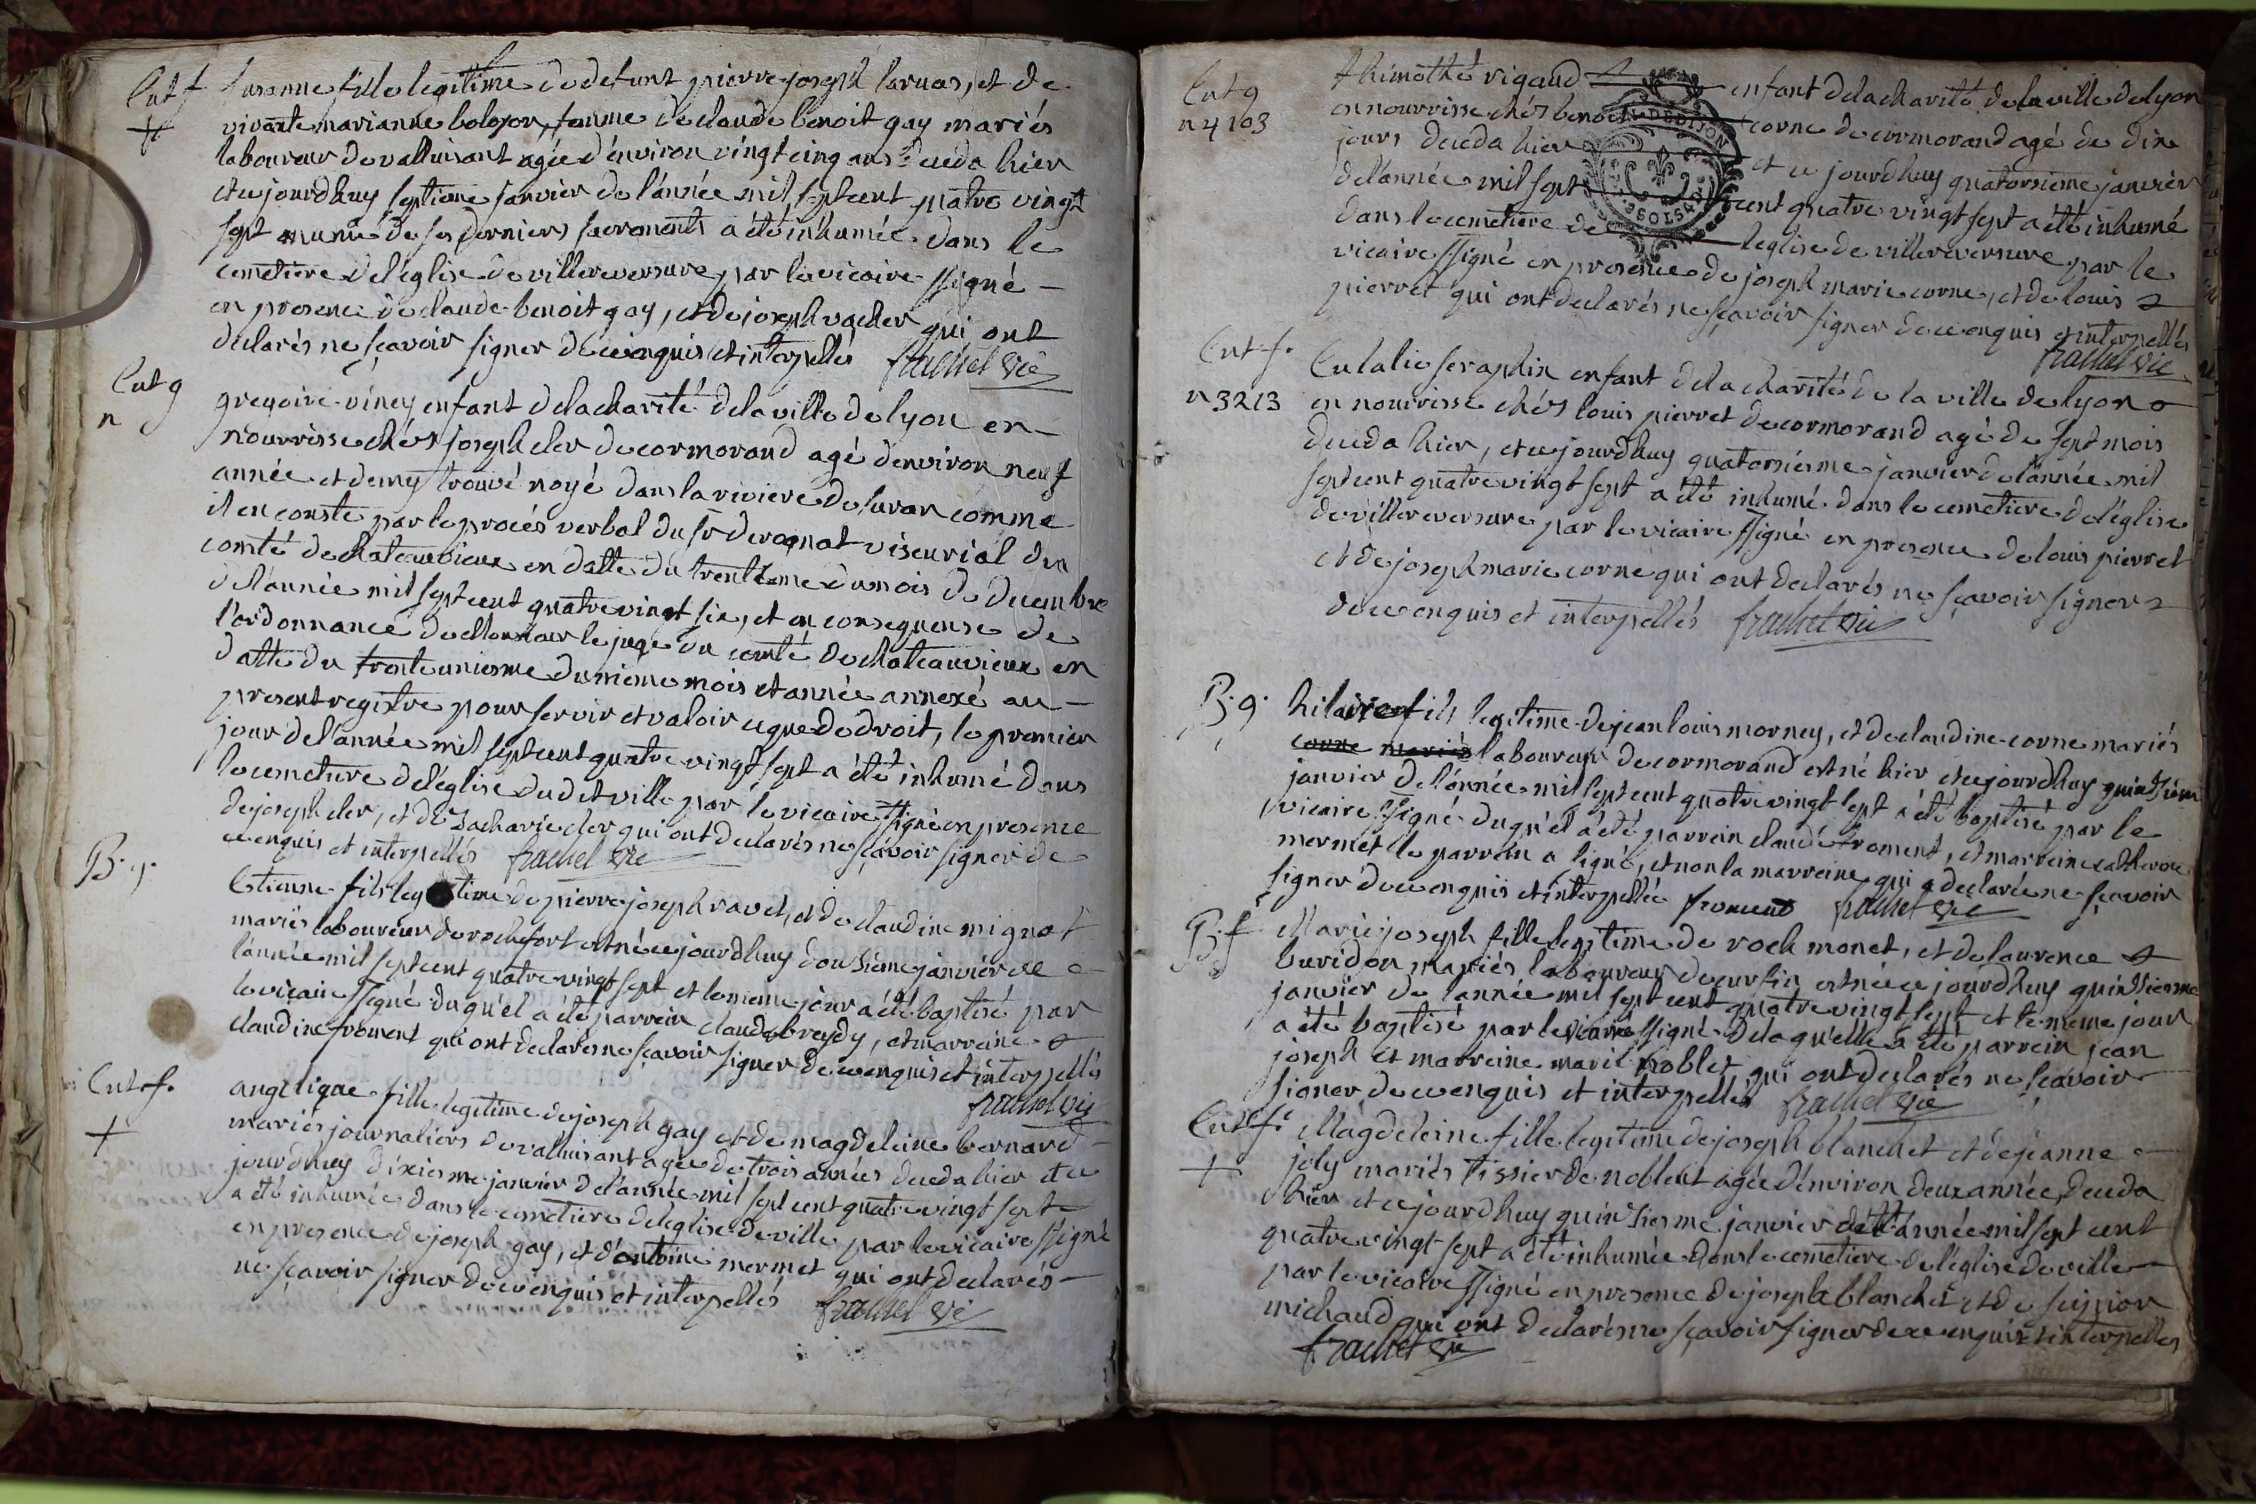 Ent f
+
Susanne fille legitime de defunt pierre joseph laruas, et de
vivante marianne bolozon, femme de claude benoit gay mariés
laboureur de valluisant agée d'environ vingt cinq ans deceda hier
et cejourdhuy septieme janvier de l'année mil sept cent quatre vingt
sept munie de ses derniers sacrements a été inhumée dans le
cemetiere de l'église de villereversure par le vicaire ssigné
en presence de claude benoit gay, et de joseph vacher qui ont
declarés ne sçavoir signer de ce enquis et interpellés frachet vic
Ent g
n
gregoire viney enfant de la charité de la ville de lyon en
nourrisse chés joseph cler de cormorand agé d'environ neuf
année et demy trouvé noyé dans la riviere de suran comme
il en conste par le procés verbal du sr viscurial du
comté de chateauvieux en datte du trentieme du mois de decembre
de l'année mil sept cent quatre vingt six, et en consequense de
l'ordonnance de le juge du comté de chateauvieux en
datte du trente uniesme du même mois et année annexé au
present registre pour servir et valoir ce que de droit, le premier
jour de l'année mil sept cent quatre vingt sept a été inhumé dans
le cemetiere de l'église dudit ville par le vicaire ssigné en presence
de joseph cler, et de Zacharie cler qui ont declarés ne sçavoir signer de
ce enquis et interpellés frachet vic
B. g.
Etienne fils legitime de pierre joseph ravet, et de claudine mignot
mariés laboureur de rochefort est né cejourdhuy douzieme janvier de
l'année mil sept cent quatre vingt sept et le meme jour a été baptisé par
le vicaire ssigné du qu'el a été parrein claude breydy, et marreine
claudine froment qui ont declarés ne sçavoir signer de ce enquis et interpellés
frachet vic
Ent. f.
+
angelique fille legitime de joseph gay et de magdeleine bernard
mariés journaliers de valluisant agée de trois années deceda hier et ce
jourdhuy dixiesme janvier de l'année mil sept cent quatre vingt sept
a été inhumée dans le cemetiere de l'église de ville par le vicaire ssigné
en presence de joseph gay, et d'antoine mermet qui ont declarés
ne sçavoir signer de ce enquis et interpellés frachet vic
Ent g
n 4103
thimothé rigaud enfant de la charité de la ville de lyon
en nourrisse chés benoit corne de cormorand agé de dix
jours deceda hier et ce jourdhuy quatorsieme janvier
de l'année mil sept cent quatre vingt sept a été inhumé
dans le cemetiere de l'eglise de villereversure par le
vicaire ssigné en presence de joseph marie corne, et de louis
pierret qui ont declarés ne sçavoir signer de ce enquis et interpellés
frachet vic
Ent. f.
n 3213
Eulalie seraphin enfant de la charité de la ville de lyon
en nourrisse chés louis pierret de cormorand agé de sept mois
deceda hier, et ce jourdhuy quatorsiesme janvier de l'année mil
sept cent quatre vingt sept a été inhumé dans le cemetiere de l'église
de villereversure par le vicaire ssigné en presence de louis pierret
et de joseph marie corne qui ont declarés ne sçavoir signer
de ce enquis et interpellés frachet vic
B. g.
hilaire fils legitime de jean louis morney, et de claudine corne mariés
corne mariés laboureur de cormorand est né hier et cejourdhuy quintsieme
janvier de l'année mil sept cent quatre vingt sept a été baptisé par le
vicaire ssigné du qu'el a été parrein claude froment, et marreine catherine
mermet le parrein a signé, et non la marreine qui a declarée ne sçavoir
signer de ce enquis et interpellée froment frachet vic
B. f
Marie joseph fille legitime de roch monet, et de laurence
buridon mariés laboureur est née ce jourdhuy quintsiesme
janvier de l'année mil sept cent quatre vingt sept et le meme jour
a été baptisé par le vicaire ssigné de la qu'elle a été parrein jean
joseph et marreine marie noblet qui ont declarés ne sçavoir
signer de ce enquis et interpellés frachet vic
Ent f.
+
Magdeleine fille legitime de joseph blanchet et de jeanne
joly mariés tissier de noblens agée d'environ deux année deceda
hier et ce jourdhuy quintsiesme janvier de l'année mil sept cent
quatre vingt sept a été inhumée dans le cemetiere de l'église de ville
par le vicaire ssigné en presence de joseph blanchet et de scipion
michaud qui ont declarés ne sçavoir signer de ce enquis et interpellés
frachet vic